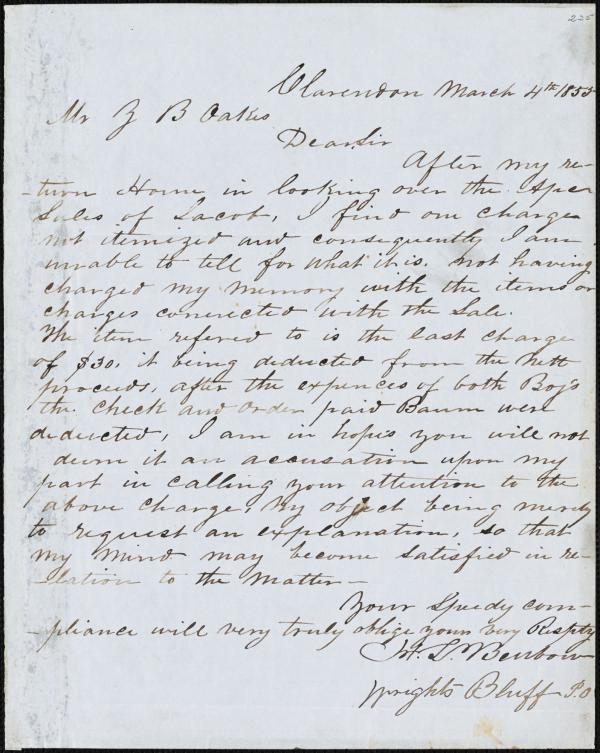 225
Clarendon March 4th 1855
Mr Z B Oakes
Dear Sir
After my re-
-turn Home in looking over the
Sales of Jacob, I find one charge
not itemized and consequently I am
unable to tell for what it is. not having
charged my memory with the items or
charges connected with the Sale.
The item refered to is the last charge
of $30. it being deducted from the nett
proceeds, after the expences of both Boys
the Check and order paid Baum were
deducted, I am in hopes you will not
deem it an accusation upon my
part in calling your attention to the
above charge, My object being merely
to request an explanation, so that
my mind may become satisfied in re-
-lation to the matter—
Your Speedy com-
-pliance will very truly oblige yours very Respty
H. L. Benbow
Wrights Bluff P.O